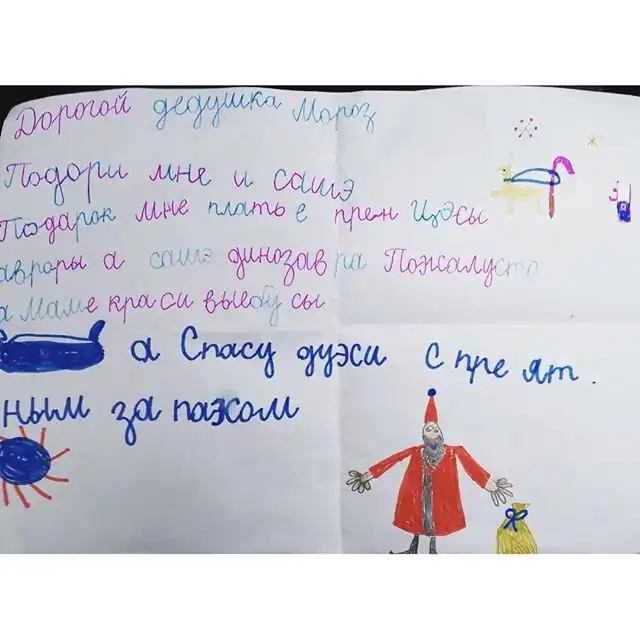 Дорогой дедушка Мороз
Подори мне и сашэ
Подарок мне платье прен Цэсы
авроры а сашэ динозавра Пожалусто
а Маме краси выебу сы
а Спасу дуэси с пре ят.
ным запахом